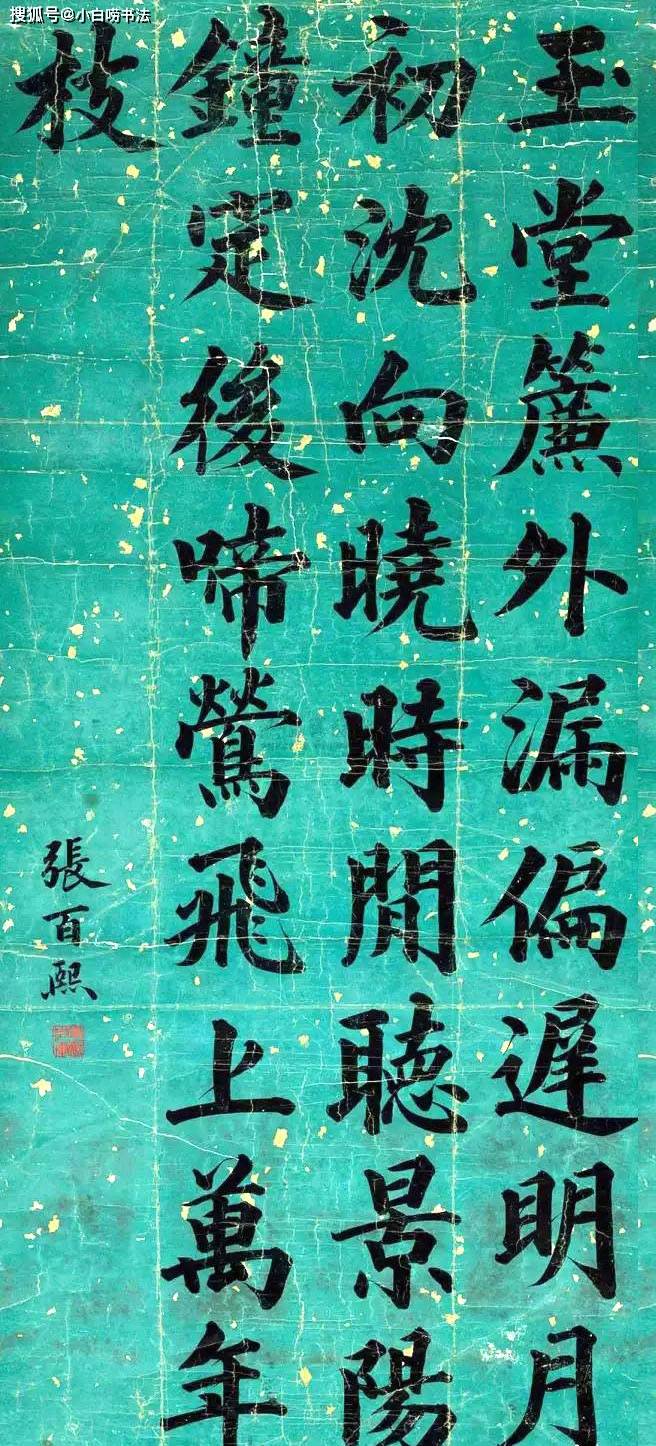 搜狐号@小白唠书法
玉堂簾外漏偏遲明月
初沈向曉時閒聽景陽
鐘定後啼鶯飛上萬年
枝
張百熙